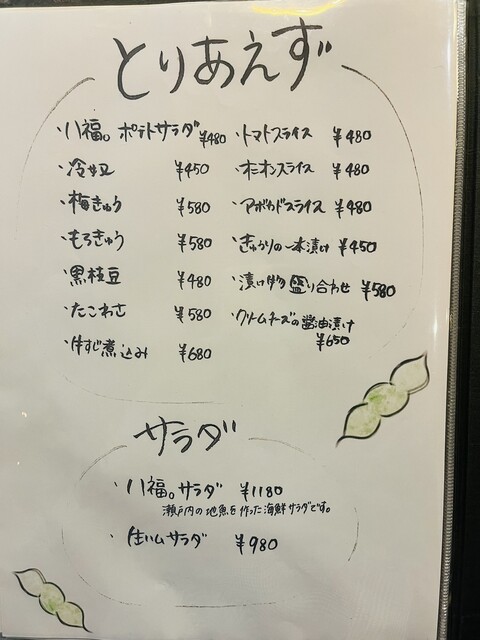 とりあえず
・八福。ポテトサラダ ¥480
・冷奴 ¥450
・梅きゅう ¥580
・もろきゅう ¥580
・黒枝豆 ¥480
・たこわさ ¥580
・牛すじ煮込み ¥680
・トマトスライス ¥480
・オニオンスライス ¥480
・アボカドスライス ¥480
・きゅうりの一本漬け ¥450
・漬け物盛り合わせ ¥580
・クリームチーズの醤油漬け
¥650
サラダ
・八福。サラダ ¥1180
瀬戸内の地魚を作った海鮮サラダです。
・生ハムサラダ ¥980